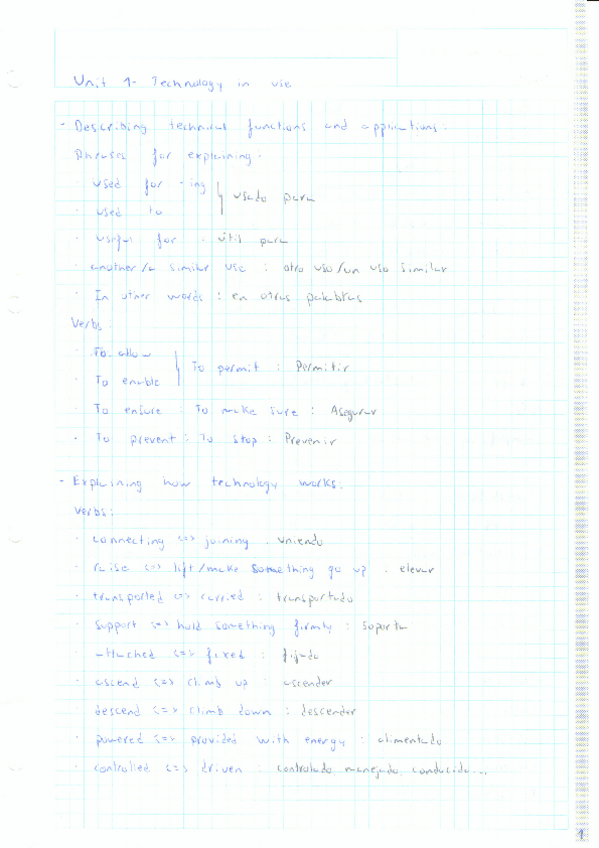 Unit 1- Technology in use
- Describing technical functions and applications:
Phrases for explaining:
· used for -ing } usado para
· used to
· useful for : útil para
· another/a similar use : otro uso/un uso similar
· In other words : en otras palabras
Verbs
· To allow } To permit : Permitir
· To enable
· To ensure : To make sure : Asegurar
· To prevent : To stop : Prevenir
- Explaining how technology works:
Verbs:
· connecting <=> joining : uniendo
· raise <=> lift/make something go up : elevar
· transported <=> carried : transportado
· support <=> hold something firmly : soporta
· attached <=> fixed : fijado
· ascend <=> climb up : ascender
· descend <=> climb down : descender
· powered <=> provided with energy : alimentado
· controlled <=> driven : controlado, manejado, conducido...
1